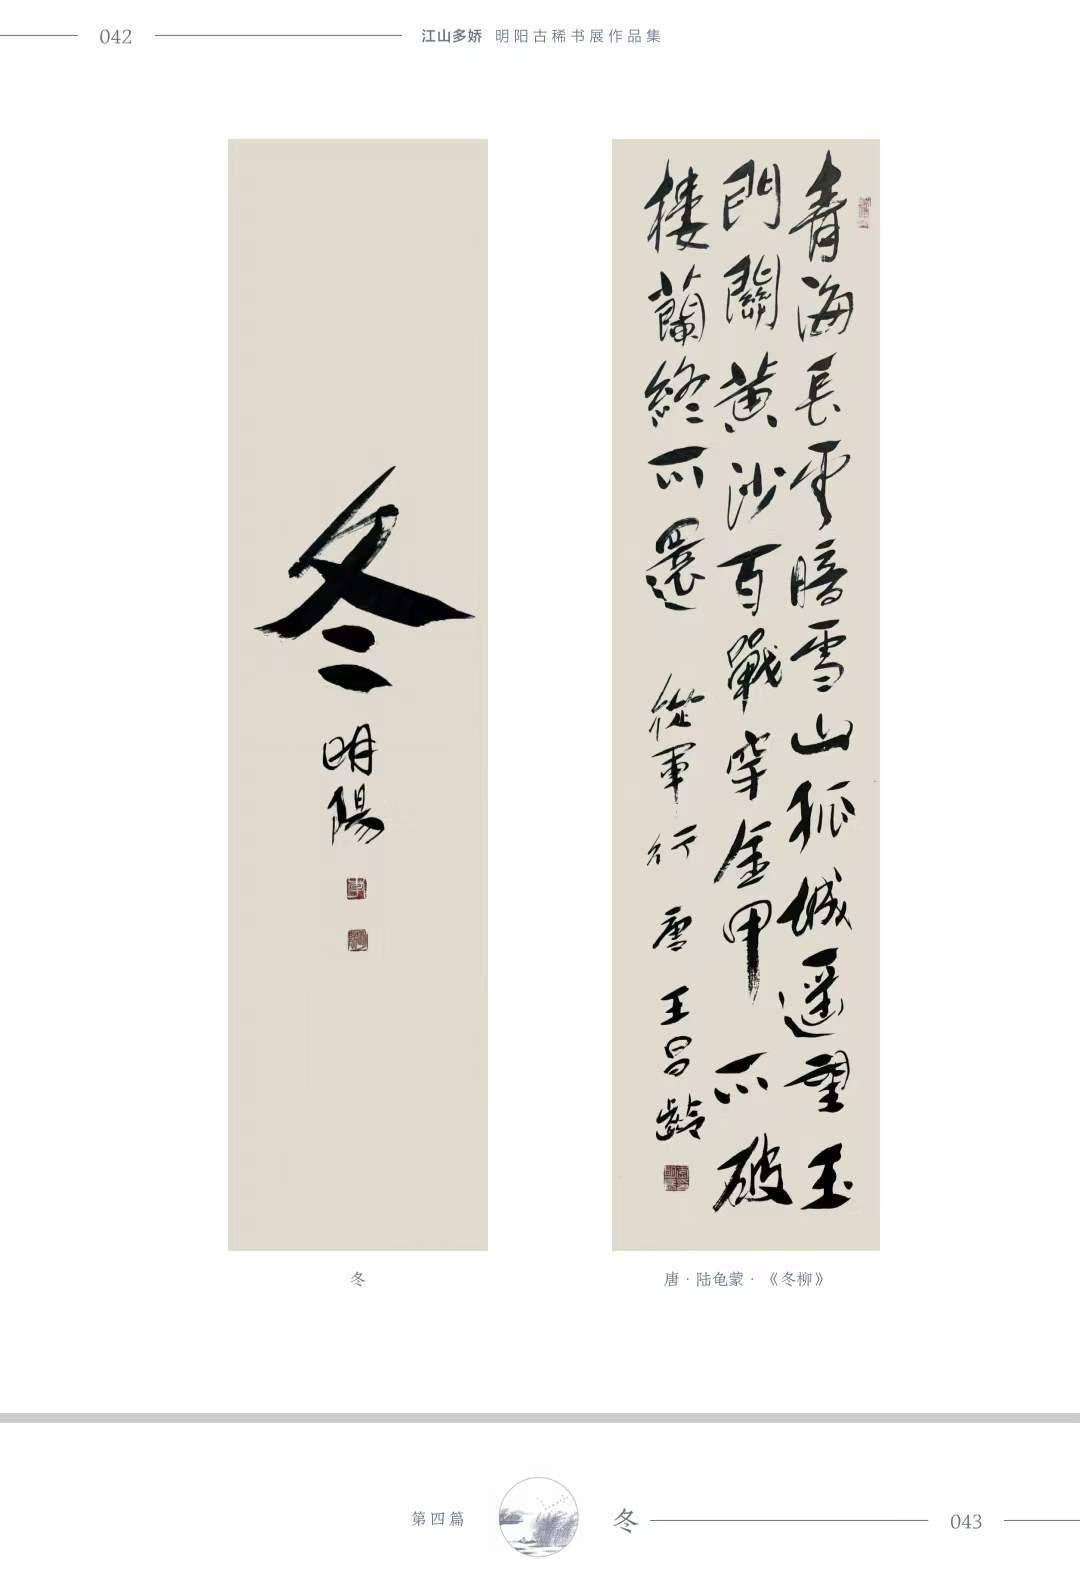 042
江山多娇 明阳古稀书展作品集
冬
明陽
青海長雲暗雪山孤城遥望玉
門關黄沙百戰穿金甲不破
樓蘭終不還 從軍行 唐 王昌齡
冬
唐·陆龟蒙·《冬柳》
第四篇
冬
043